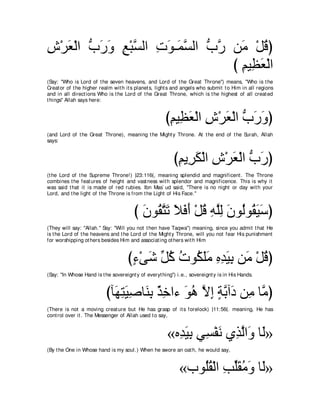 (قُلْ مَن رَّبُّ السَّمَـوَتِ السَّبْعِ وَرَبُّ الْعَرْشِ
الْعَظِيمِ )
(Say: "Who is Lord of the seven heavens, and Lord of the Great Throne") means, "Who is the
Creator of the higher realm with its planets, lights and angels who submit to Him in all regions
and in all directions Who is the Lord of the Great Throne, which is the highest of all created
things" Allah says here:
(وَرَبُّ الْعَرْشِ الْعَظِيمِ)
(and Lord of the Great Throne), meaning the Mighty Throne. At the end of the Surah, Allah
says:
(رَبُّ الْعَرْشِ الْكَرِيمِ)
(the Lord of the Supreme Throne!) (23:116), meaning splendid and magnificent. The Throne
combines the features of height and vastness with splendor and magnificence. This is why it
was said that it is made of red rubies. Ibn Mas`ud said, "There is no night or day with your
Lord, and the light of the Throne is from the Light of His Face."
(سَيَقُولُونَ لِلَّهِ قُلْ أَفَلاَ تَتَّقُونَ )
(They will say: "Allah." Say: "Will you not then have Taqwa") meaning, since you admit that He
is the Lord of the heavens and the Lord of the Mighty Throne, will you not fear His punishment
for worshipping others besides Him and associating others with Him
(قُلْ مَن بِيَدِهِ مَلَكُوتُ كُلِّ شَىْءٍ)
(Say: "In Whose Hand is the sovereignty of everything") i.e., sovereignty is in His Hands.
(مَّا مِن دَآبَّةٍ إِلاَّ هُوَ ءاخِذٌ بِنَاصِيَتِهَآ)
(There is not a moving creature but He has grasp of its forelock) (11:56), meaning, He has
control over it. The Messenger of Allah used to say,
«لَا وَالَّذِي نَفْسِي بِيَدِه»
(By the One in Whose hand is my soul.) When he swore an oath, he would say,
«لَا وَمُقَلِّبَ الْقُلُوب»